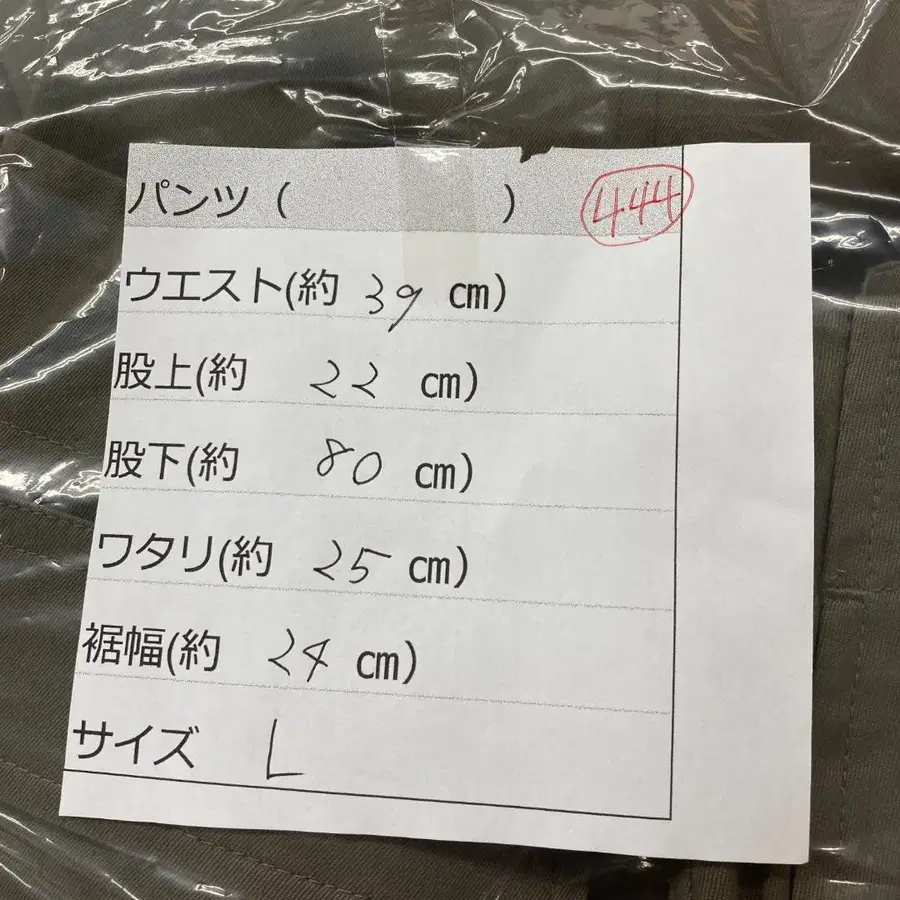 パンツ（　　　） 444
ウエスト(約 39 cm)
股上(約 22 cm)
股下(約 80 cm)
ワタリ(約 25 cm)
裾幅(約 24 cm)
サイズ L